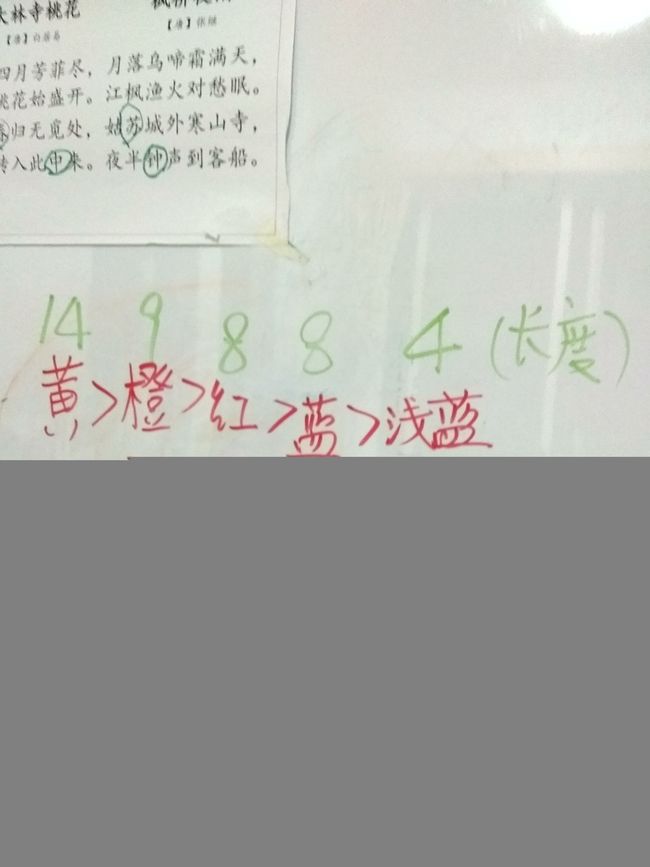 大林寺桃花
【唐】白居易
四月芳菲尽，
桃花始盛开。
春归无觅处，
转入此中来。
【唐】张继
月落乌啼霜满天，
江枫渔火对愁眠。
姑苏城外寒山寺，
夜半钟声到客船。
14 9 8 8 4 (长度)
黄>橙>红>蓝>浅蓝